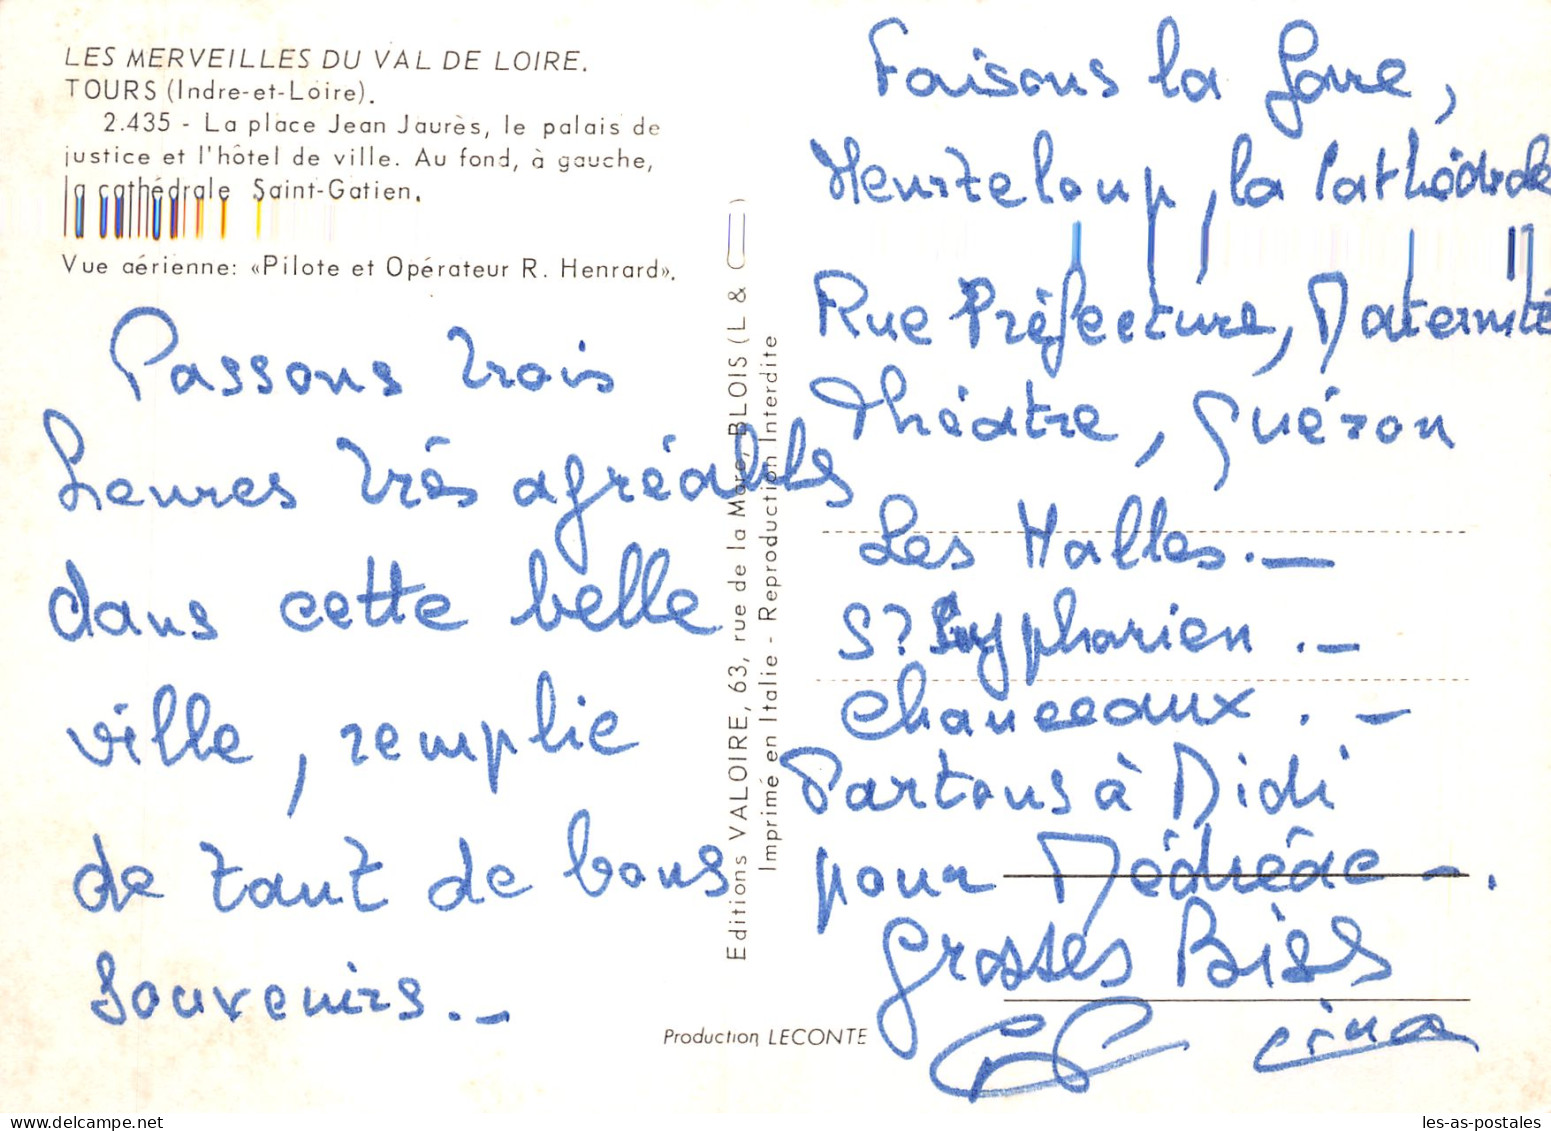 LES MERVEILLES DU VAL DE LOIRE.
TOURS (Indre-et-Loire).
2.435 - La place Jean Jaurès, le palais de
justice et l'hôtel de ville. Au fond, à gauche,
la cathédrale Saint-Gatien.
Vue aérienne: «Pilote et Opérateur R. Henrard».
Passons trois
heures très agréables
dans cette belle
ville, remplie
de tant de bons
souvenirs._
Editions VALOIRE, 63, rue de la More, BLOIS (L & C)
Imprimé en Italie - Reproduction Interdite
Production LECONTE
Faisons la Gare,
Heurteloup, la Cathédrale
Rue Préfecture, Maternité
Théâtre, Guéron
Les Halles._
St Symphorien._
Chanceaux._
Partons à Midi
pour
Grosses Bises
les-as-postales